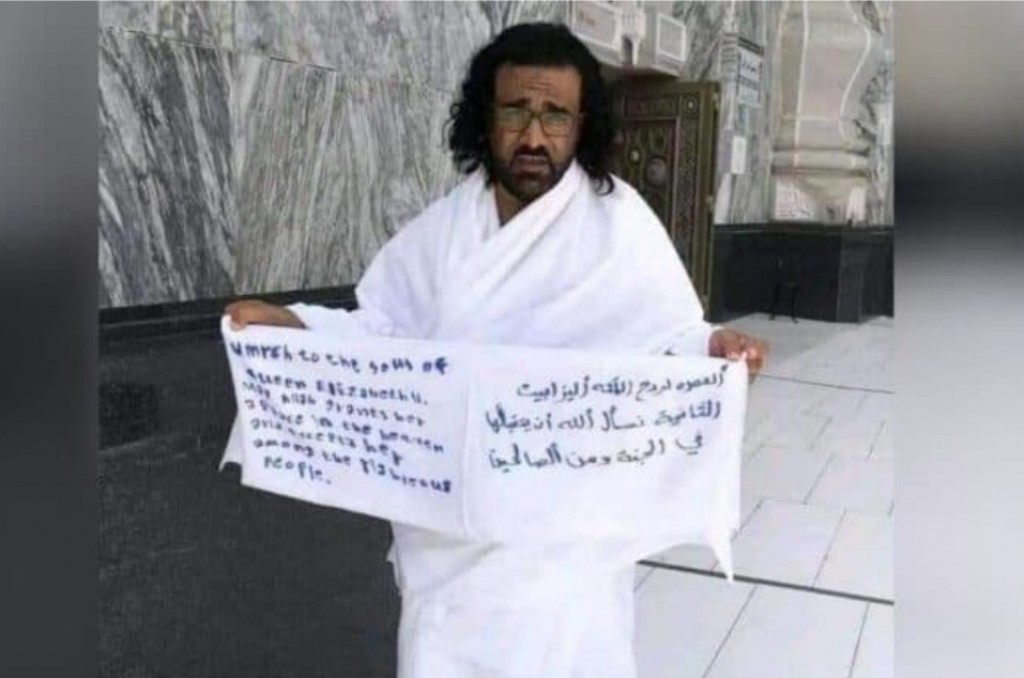 Umrah to the soul of
Queen Elizabeth II.
May Allah grants her
a place in the heaven
and accepts her
among the righteous
People.
العمره لروح الملكه أليزابيث
الثانية نسأل الله أن يتقبلها
في الجنة ومن الصالحين